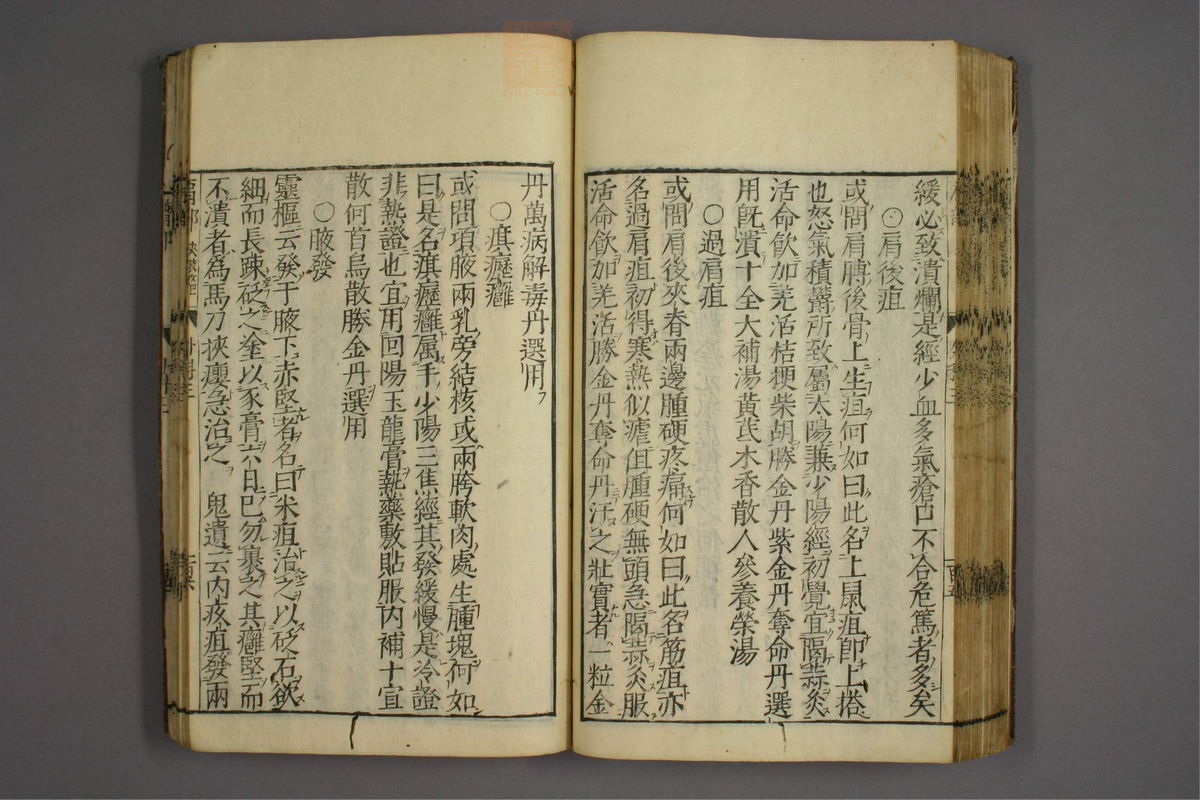 緩必致潰爛是經少血多氣瘡口不合危篤者多矣
○肩後疽
或問肩膊後骨上生疽何如曰此名上鼠疽卽上搭
也怒氣積欝所致屬太陽兼少陽經初覺宜隔蒜灸
活命飲加羌活桔梗柴胡勝金丹紫金丹奪命丹選
用旣潰十全大補湯黃芪木香散人參養榮湯
○過肩疽
或問肩後來脊兩邊腫硬疼痛何如曰此名筋疽亦
名過肩疽初得寒熱似瘧但腫硬無頭急隔蒜灸服
活命飲加羌活勝金丹奪命丹汗之壯實者一粒金
丹萬病解毒丹選用
○瘨癧癰
或問項腋兩乳旁結核或兩胯軟肉處生腫塊何如
曰是名瘨癧癰属手少陽三焦經其發緩慢是冷證
非熱證也宜用回陽玉龍膏熱藥敷貼服內補十宣
散何首烏散勝金丹選用
○腋發
靈樞云發于腋下赤堅者名曰米疽治之以砭石欲
細而長疎砭之塗以豕膏六日已勿裹之其癰堅而
不潰者為馬刀挾癭急治之 鬼遺云內疚疽發兩